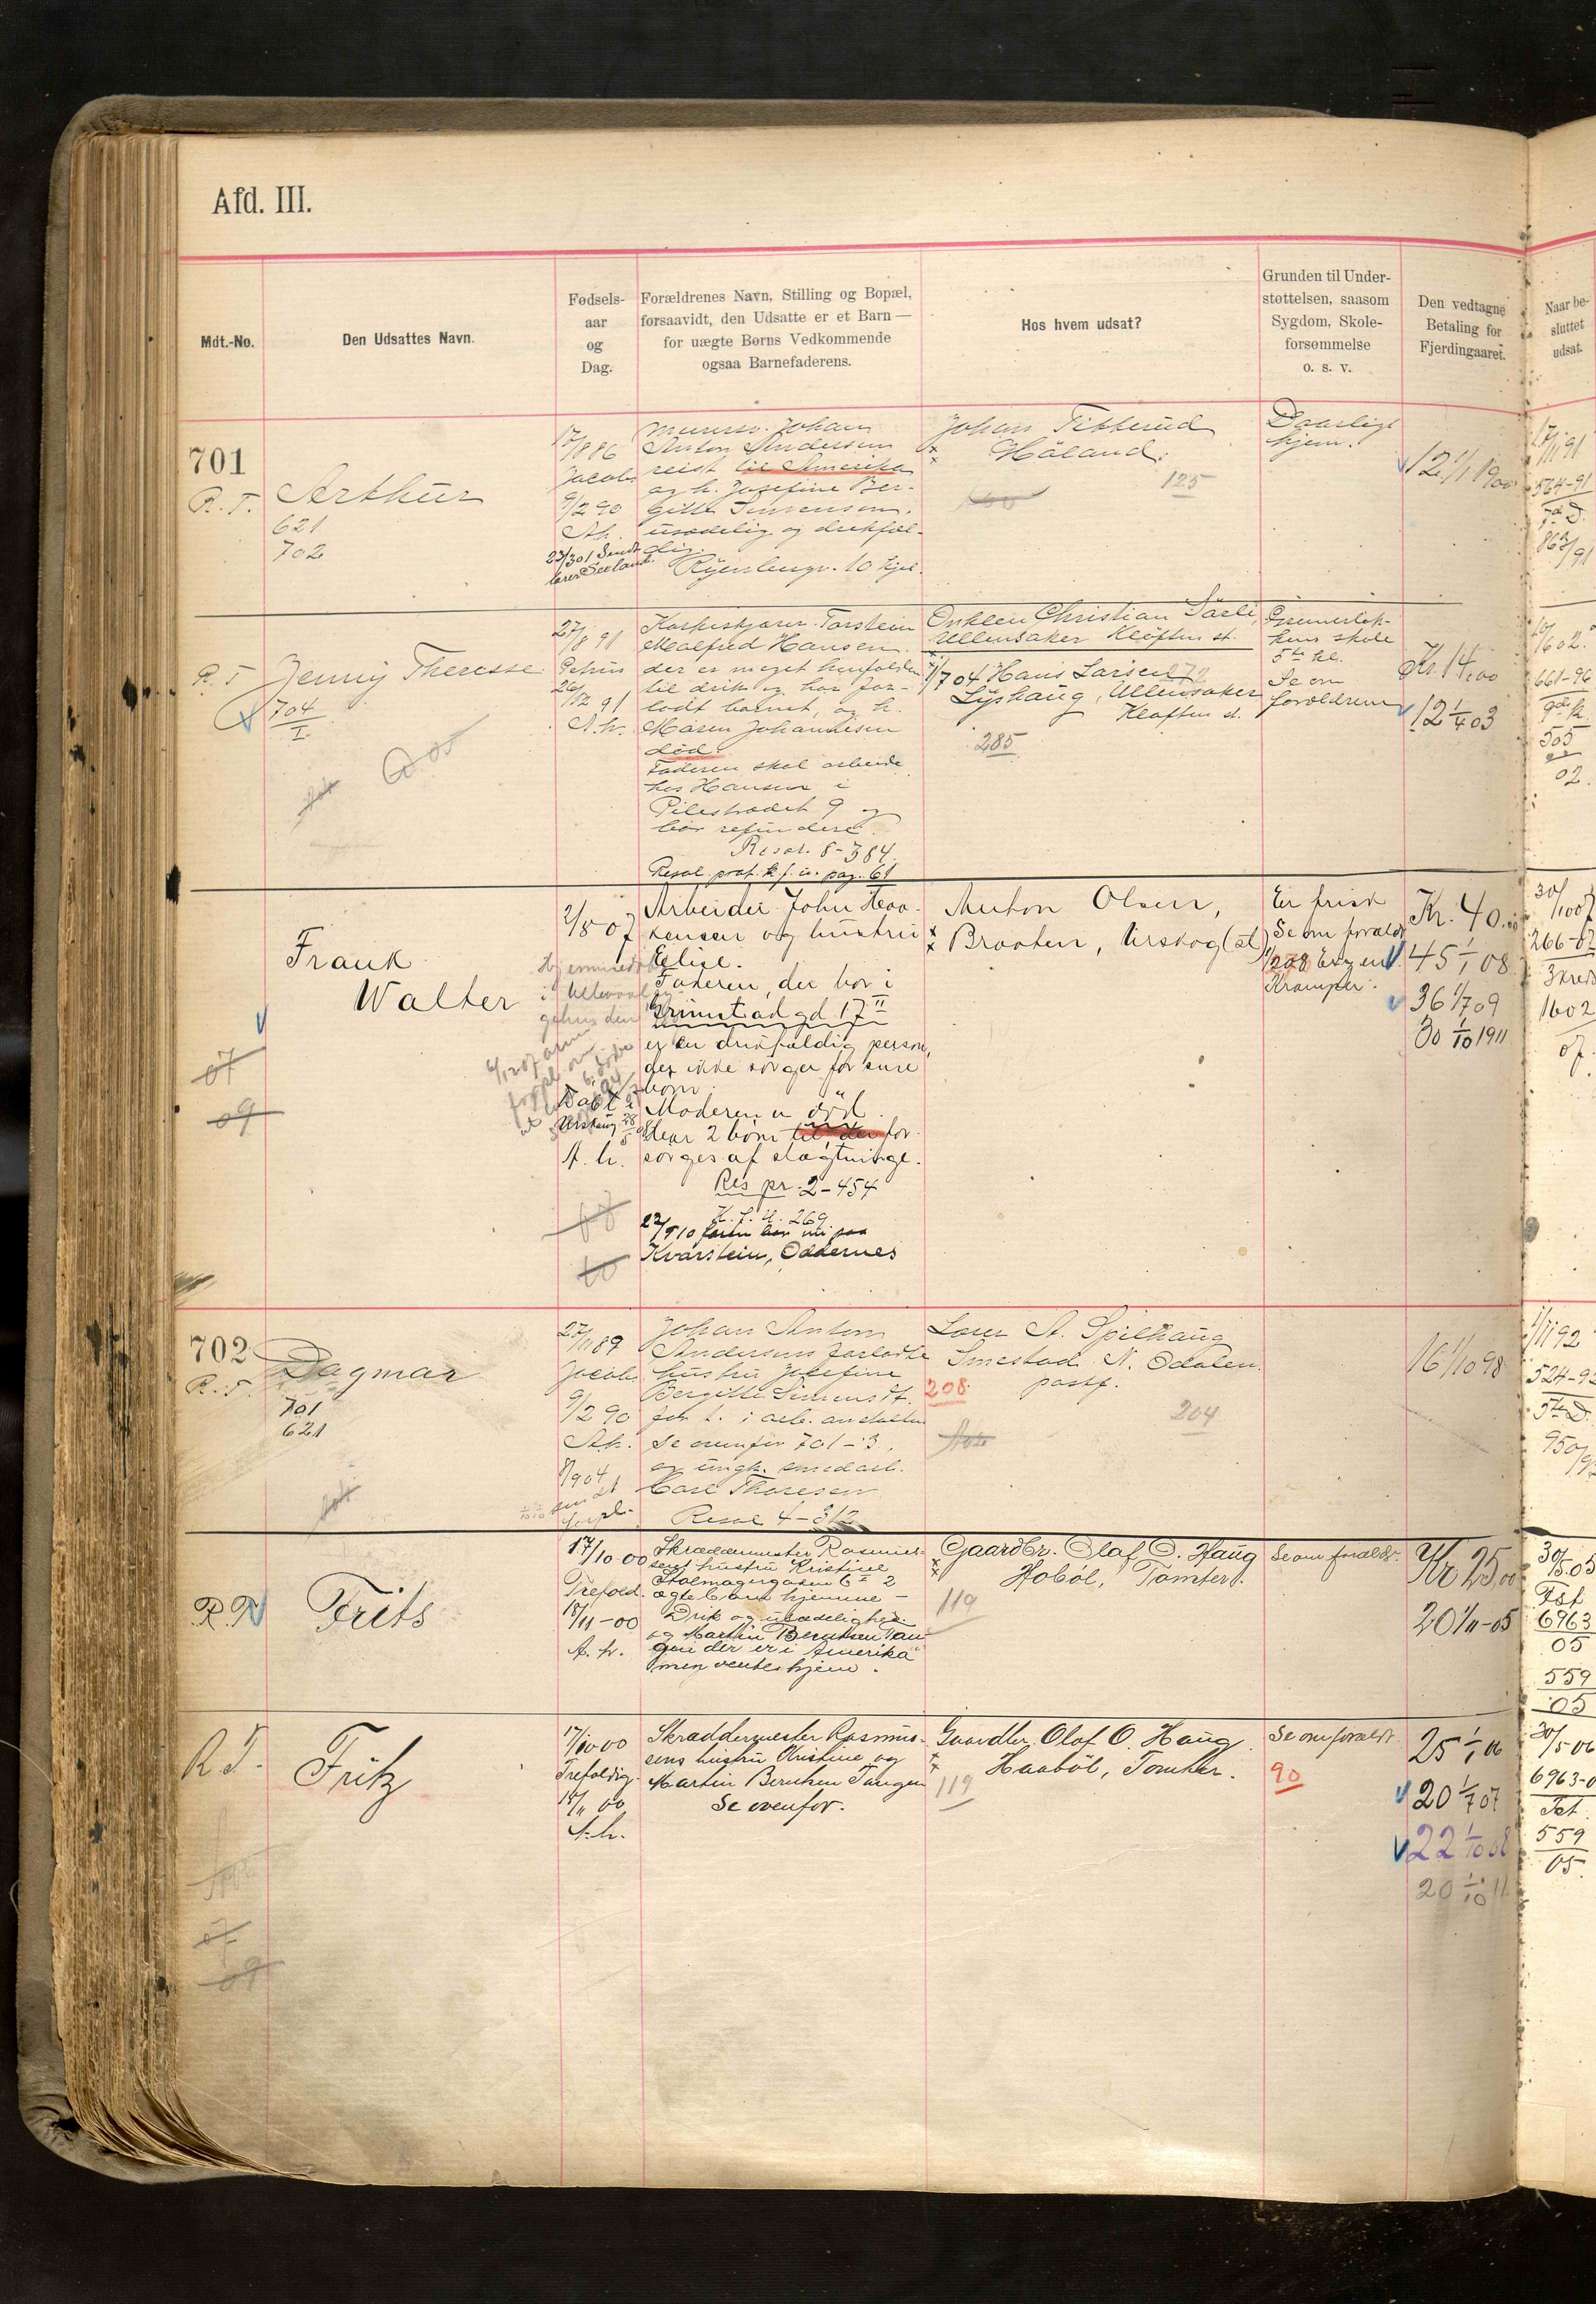 Afd. III.
Mdt.-No.
Den Udsattes Navn.
Fødsels-
aar
og
Dag.
Forældrenes Navn, Stilling og Bopæl,
forsaavidt, den Udsatte er et Barn —
for uægte Børns Vedkommende
ogsaa Barnefaderens.
Hos hvem udsat?
Grunden til Under-
støttelsen, saasom
Sygdom, Skole-
forsømmelse
o. s. v.
Den vedtagne
Betaling for
Fjerdingaaret.
Naar be-
sluttet
udsat.
701
R. T.
Arthur
621
702
17/8 86
Jacobs
9/2 90
A.h.
23/3 01 Sendt
lærer Seeland.
Murersv. Johan
Anton Andersen
reist til Amerika
og h. Josefine Ber-
gitte Simensen.
usædelig og drikfæl-
dig.
10 kjel.
Johan
Høland.
125
Daarligt
hjem.
12 1/1 1900
17/11 91
564-91
R. T.
Jenny Theresse
704
I
27/8 91
Gehus
26/12 91
A.h.
Torstein
Malfred Hansen
der er meget henfalden
til drik og har for-
ladt barnet, og h.
Maren Johannesen
død.
Faderen skal arbeide
hos Hansen i
Pilestrædet 9 og
bør refundere.
Resol. 8-384.
Resol. prot. k. f. u. pag. 61
Onklen Christian Særli,
Ullensaker Kløften st.
1/7 04 Hans Larsen
Lyshaug, Ullensaker
Kløften st.
285
Grunerløk-
kens skole
5te kl.
Se om
forældrene
Kr. 14,00
12 1/4 03
661-96
505
02.
Frank
Walter
07
09
2/8 07
A. h.
Arbeider John Haa-
kensen og hustru
Elise.
Faderen, der bor i
Grimstad gd. 17 II
er en drikfældig person,
der ikke sørger for sine
børn.
Moderen er død.
Har 2 børn til, der for-
sørges af slægtninge.
Res pr. 2-454
K. f. U. 269
22/9 10 faren bor nu paa
Kvarstein, Oddernes
Anton Olsen,
Braaten, Urskog (st)
Er frisk
Se om forældr.
Kramper.
Kr. 40.00
45 1/1 08
36 1/7 09
30 1/10 1911
30/10 07
266-07
3 kreds
1602
07.
702
R. T.
Dagmar
701
621
27/11 89
Jacobs
9/2 90
A.h.
8/9 04
sendt
Johan Anton
Andersens forladte
hustru Josefine
Bergitte Simensdt.
Se ovenfor 701-3,
og ungk. smedarb.
Carl Thoresen
Resol 4-312
Lærer A. Spilhaug
Smestad N. Odalen
postf.
208
204
16 1/10 98
1/11 92
524-92
5te D.
R. T.
Frits
17/10 00
Trefold.
18/11-00
A. h.
Skræddermester Rasmus-
sens hustru Kristine
Stolmagergaden 6 II 2
ægte barn hjemme –
Drik og usædelighed.
og Martin Berntsen Tan-
gen der er i Amerika
men ventes hjem.
Gaardbr. Olaf O. Haug
Hobøl, Tomter.
119
Se om forældr.
Kr 25,00
20 1/11-05
30/5.05
Fat
6963
05
559
05
R. T.
Fritz
09
17/10 00
Trefoldig.
18/11 00
A.h.
Skræddermester Rasmus-
sens hustru Kristine og
Martin Berntsen Tangen
Se ovenfor.
Gaardbr. Olaf O. Haug
Haabøl, Tomter.
119
Se om forældr.
90
25 1/1 06
20 1/7 07
22 1/10 08
20 1/10 11
30/5 06
6963-0
Fat.
559
05.